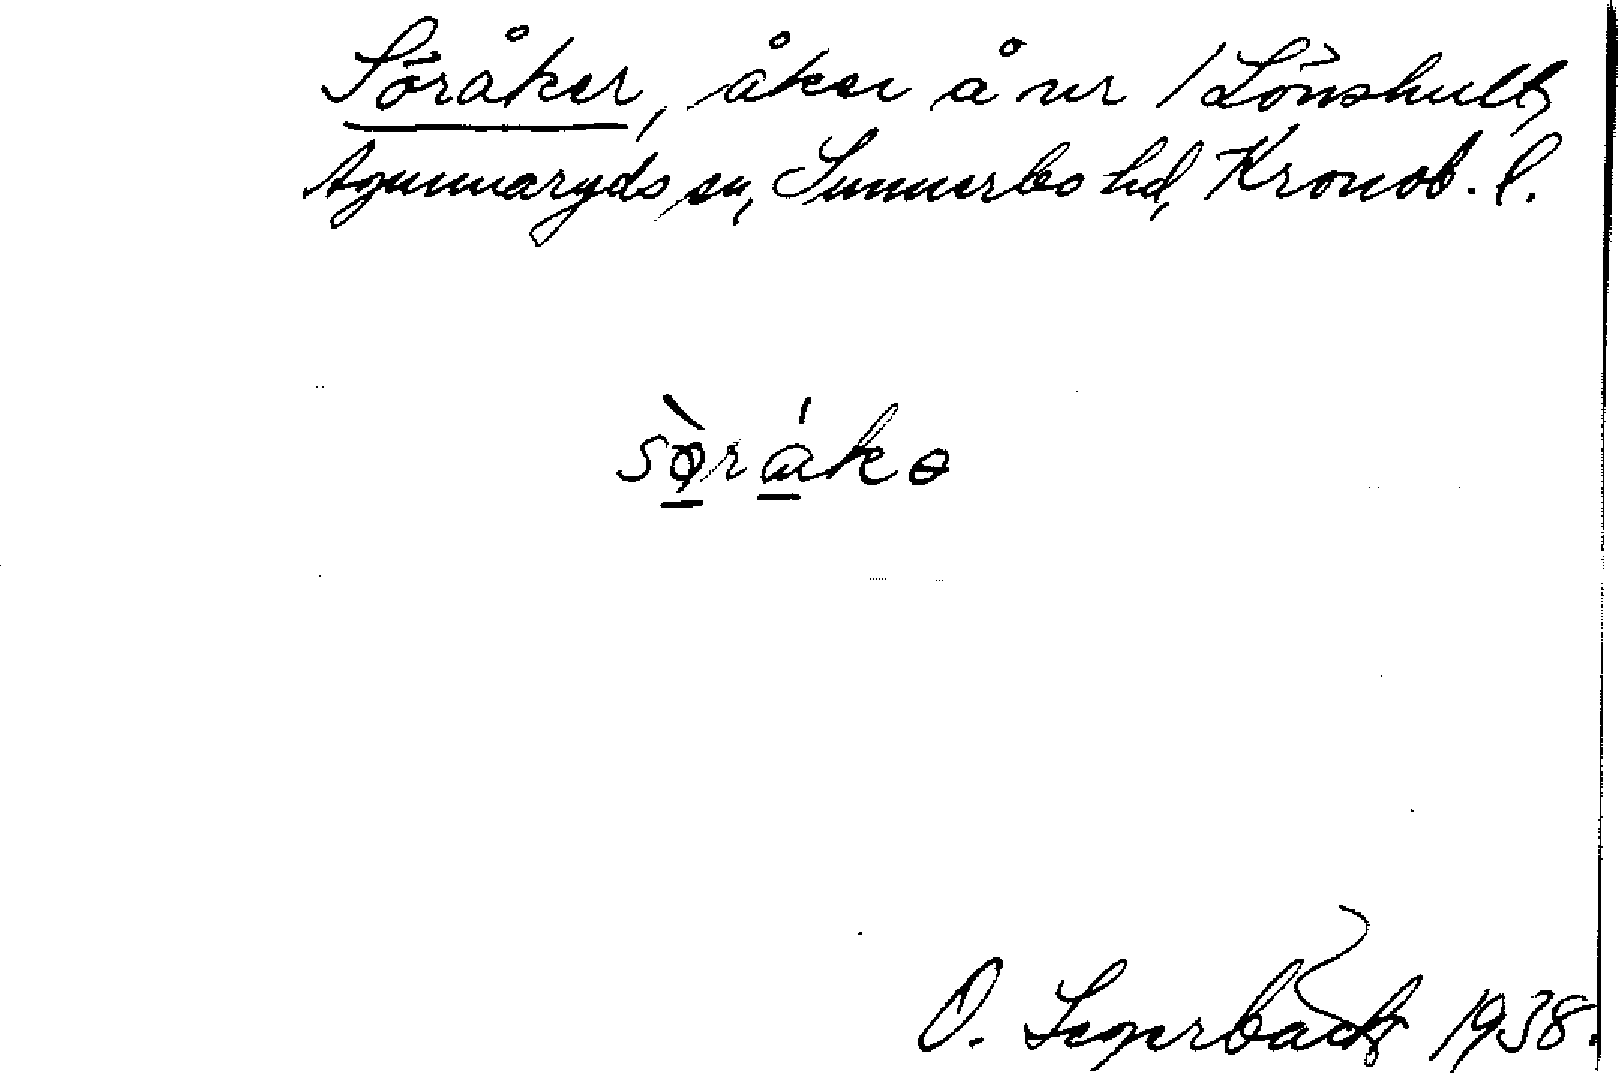 Söråker, åker å nr 1 Lönshult,
Agunnaryds sn, Sunnerbo hd, Kronob. l.
sø̀rákə
O. Segerbäck 1938.